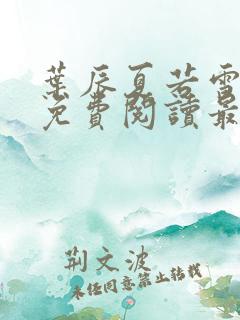 葉辰夏若雪
免費閱讀最
荊文波
未经同意禁止转载